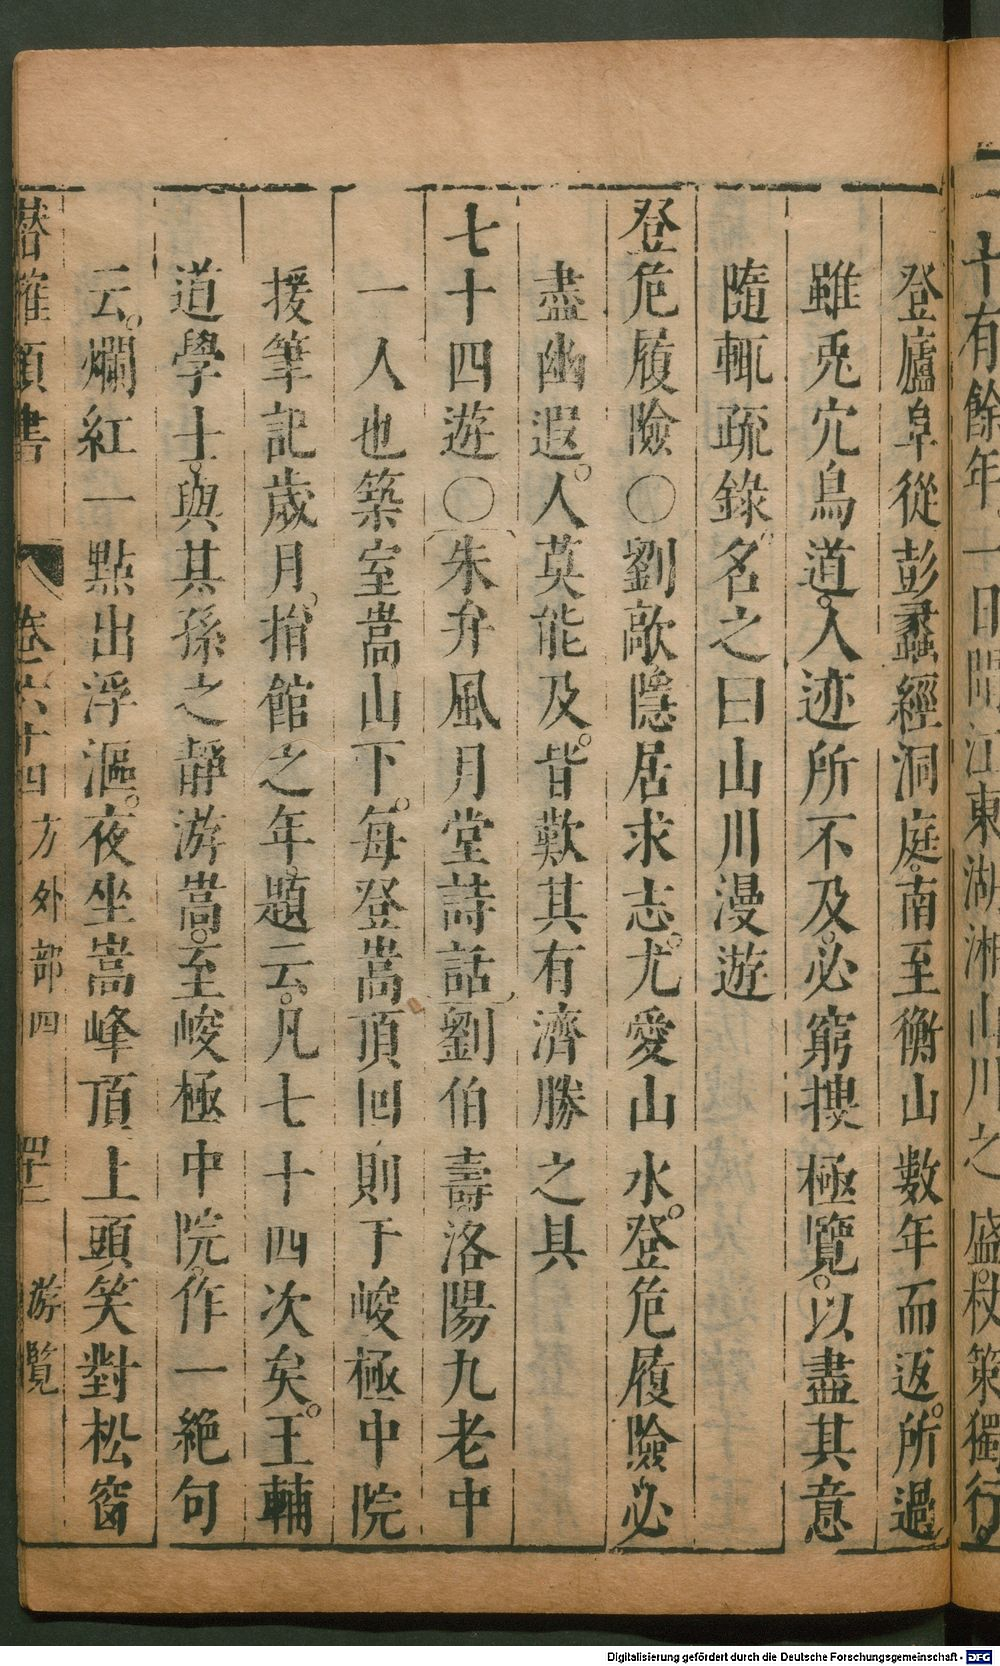 十有餘年一日聞江東湖湘山川之盛杖策獨行
登廬阜從彭蠡經洞庭南至衡山數年而返所過
雖兎穴鳥道人迹所不及必窮搜極覽以盡其意
隨輒疏錄名之曰山川漫遊
登危履險〇劉敵隱居求志尤愛山水登危履險必
盡幽遐人莫能及皆歎其有濟勝之具
七十四遊〇朱弁風月堂詩話劉伯壽洛陽九老中
一人也築室嵩山下每登嵩頂回則于峻極中院
援筆記歲月捐館之年題云凡七十四次矣王輔
道學士與其孫之靜游嵩至峻極中院作一絶句
云爛紅一點出浮漚夜坐嵩峰頂上頭笑對松窗
卷六十四 方外部四 四十二 游覧
Digitalisierung gefördert durch die Deutsche Forschungsgemeinschaft - DFG